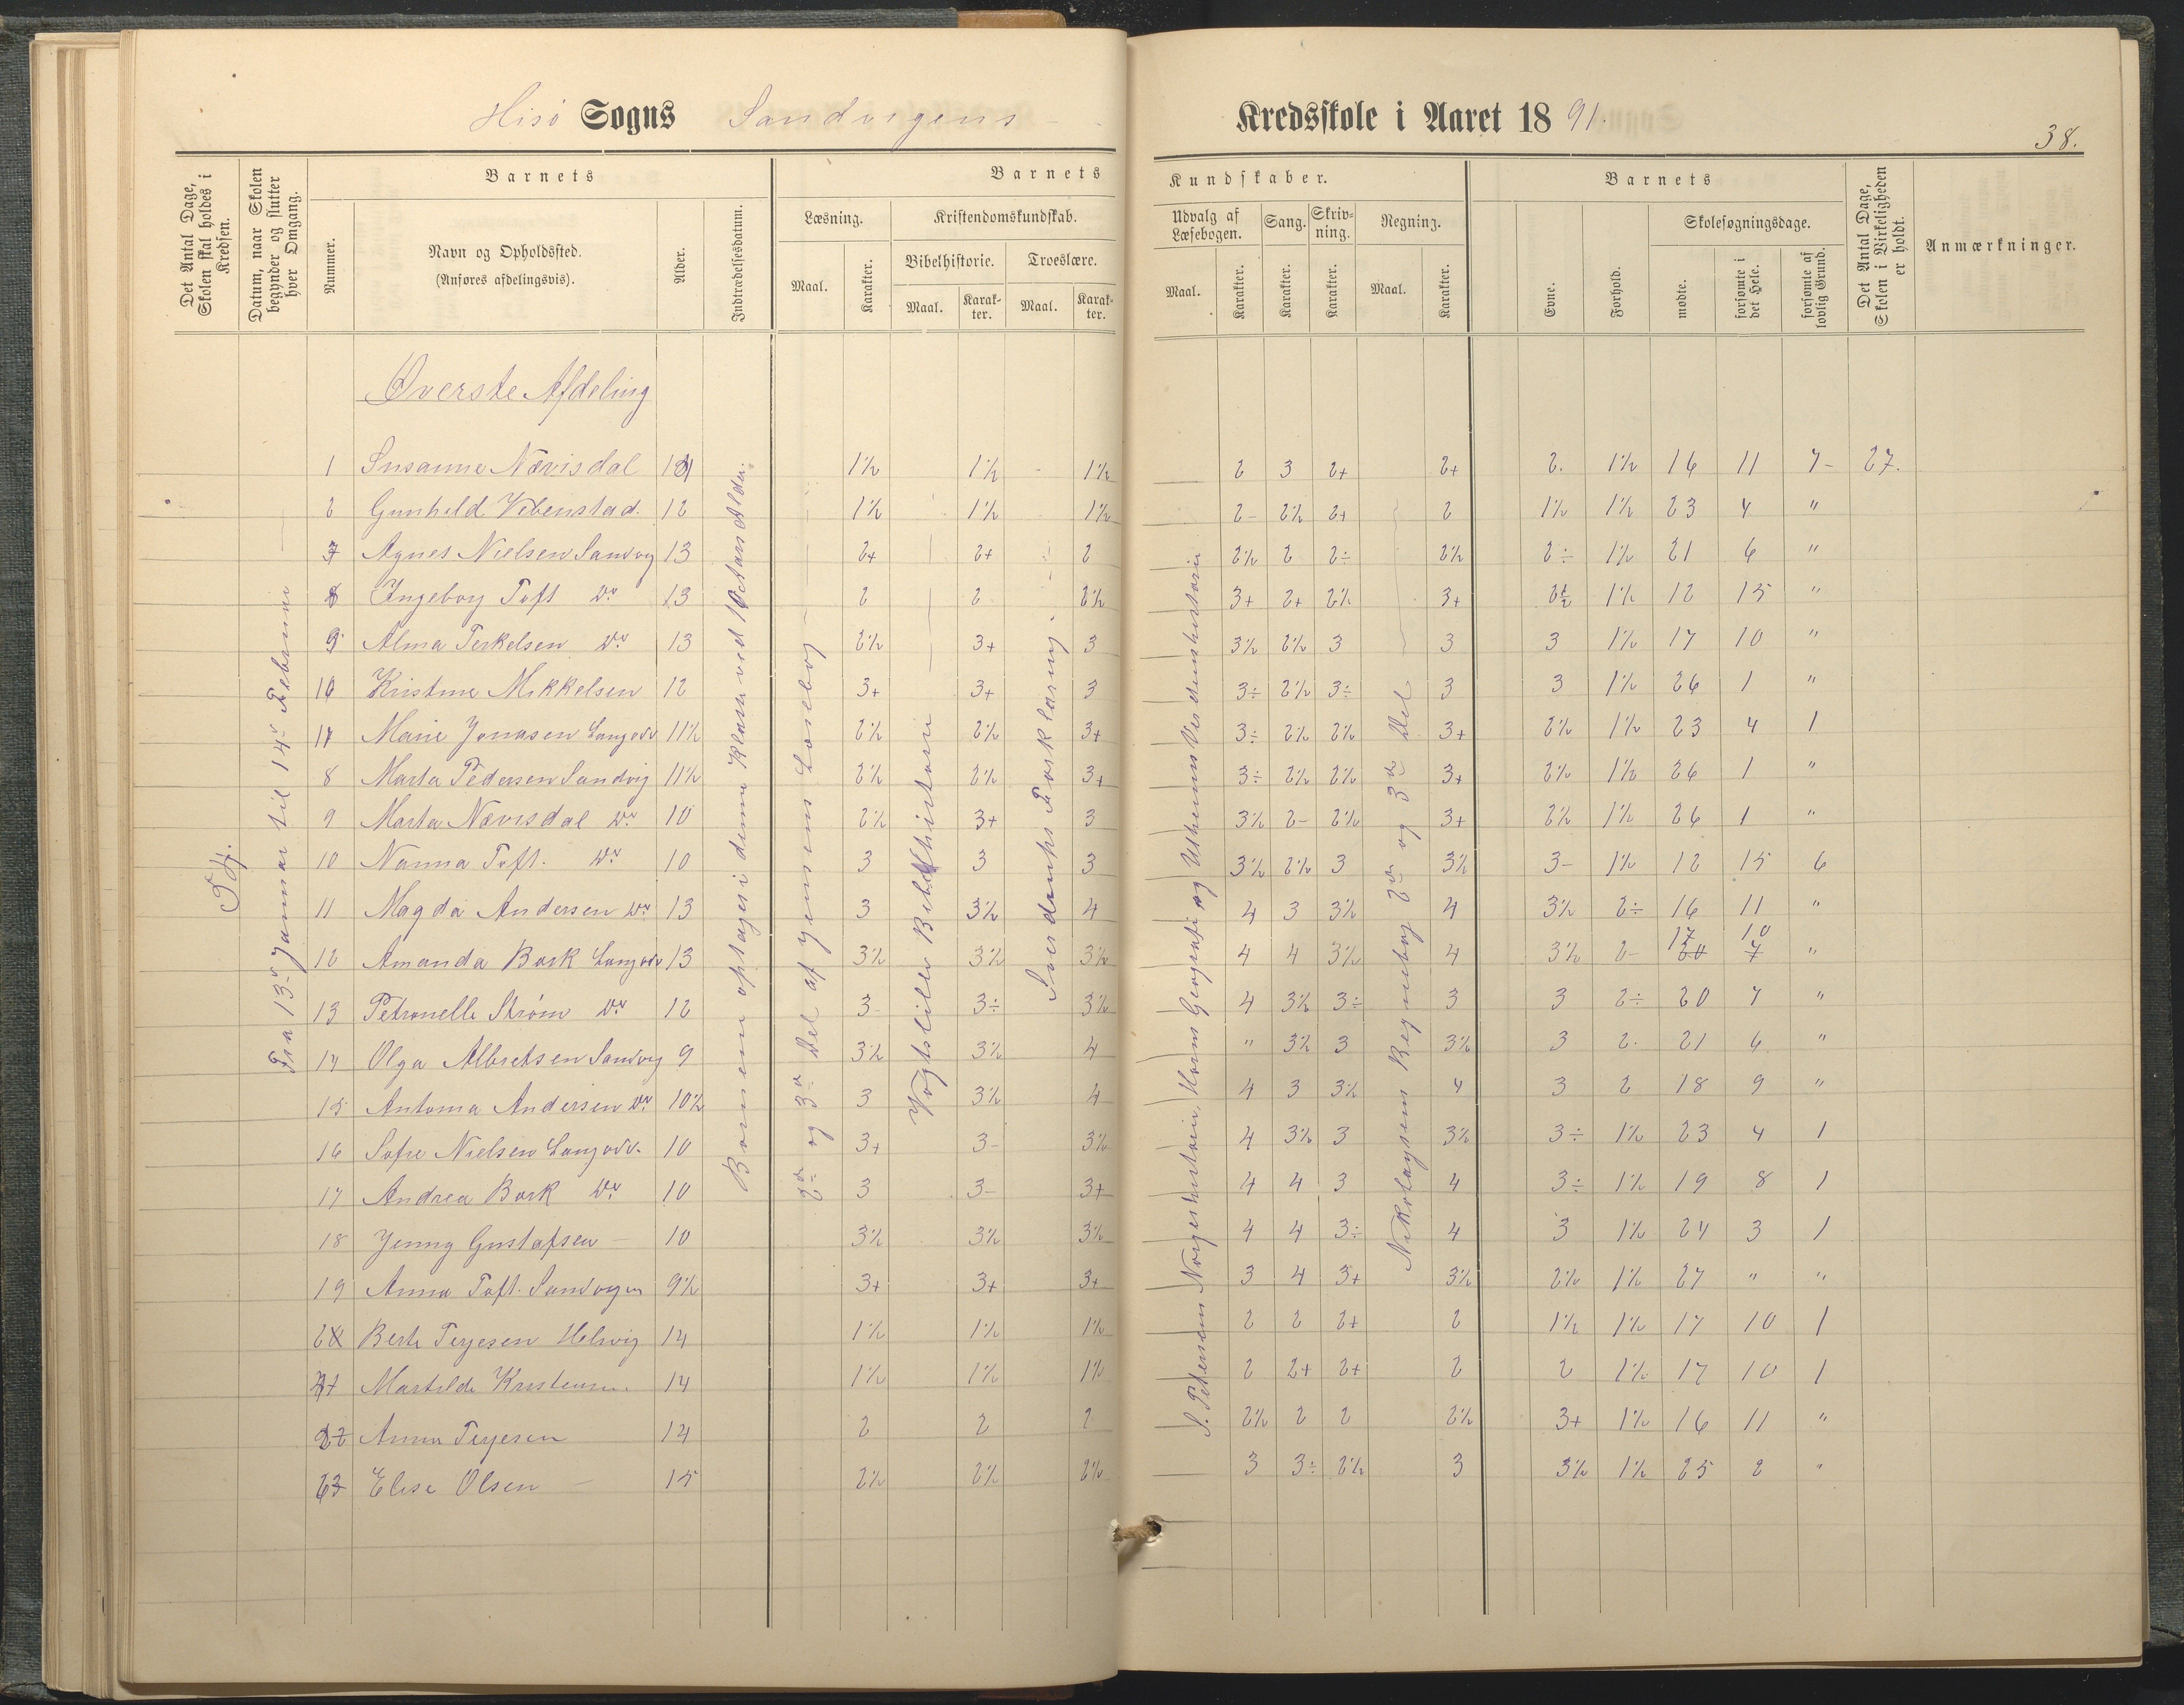 Hisö Sogns Sandvigens
Kredsskole i Aaret 1891.
38.
Det Antal Dage, Skolen skal holdes i Kredsen.
Datum, naar Skolen begynder og slutter hver Omgang.
Barnets
Nummer.
Navn og Opholdssted.
(Anføres afdelingsvis).
Alder.
Indtrædelsesdatum.
Barnets
Læsning.
Maal.
Karakter.
Kristendomskundskab.
Bibelhistorie.
Maal.
Karakter.
Troeslære.
Maal.
Karakter.
Kundskaber.
Udvalg af Læsebogen.
Maal.
Karakter.
Sang.
Karakter.
Skrivning.
Karakter.
Regning.
Maal.
Karakter.
Barnets
Evne.
Forhold.
Skolesøgningsdage.
mødte.
forsømte i det Hele.
forsømte af lovlig Grund.
Det Antal Dage, Skolen i Virkeligheden er holdt.
Anmærkninger.
Øverste Afdeling
Fra 13de Januar til 14de Februar
Børnene optages i denne Klasse ved 10 Aars Alder.
2den og 3die Del af Jensens Læsebog
Vogts lille Bibelhistorie
Sverdrups Forklaring.
S. Petersens Norgeshistorie, Horns Geografi og Uthenns Verdenshistorie
Nikolaysens Regnebog 2den og 3die Del
1 Susanne Nævisdal 1½ 1½ 1½ 2 3 2+ 2+ 2. 1½ 16 11 7 27.
2 Gunhild Vebenstad. 12 1½ 1½ 1½ 2- 2½ 2+ 2 1½ 1½ 23 4 "
Agnes Nielsen Sandvig 13 2+ 2+ 2 2½ 2 2÷ 2½ 2÷ 1½ 21 6 "
Ingeborg Toft Do 13 2 2 2½ 3+ 2+ 2½ 3+ 2½ 1½ 12 15 "
Alma Terkelsen Do 13 2½ 3+ 3 3½ 2½ 3 3 3 1½ 17 10 "
Kristine Mikkelsen 12 3+ 3+ 3 3÷ 2½ 3÷ 3 3 1½ 26 1 "
Marie Jonasen Langodv 11½ 2½ 2½ 3+ 3÷ 2½ 2½ 3+ 2½ 1½ 23 4 1
8 Marta Pedersen Sandvig 11½ 2½ 2½ 3+ 3÷ 2½ 2½ 3+ 2½ 1½ 26 1 "
9 Marta Nævisdal Do 10 2½ 3+ 3 3½ 2- 2½ 3+ 2½ 1½ 26 1 "
10 Nanna Toft. Do 10 3 3 3 3½ 2½ 3 3½ 3- 1½ 12 15 6
11 Magda Andersen Do 13 3 3½ 4 4 3 3½ 4 3½ 2÷ 16 11 "
12 Amanda Bork Langodv 13 3½ 3½ 3½ 4 4 3½ 4 3½ 2- 17 20 10 7 "
13 Petronelle Strøm Do 12 3- 3÷ 3½ 4 3½ 3÷ 3 3 2÷ 20 7 "
14 Olga Albretsen Sandvig 9 3½ 3½ 4 " 3½ 3 3½ 3 2. 21 6 "
15 Antonia Andersen Do 10½ 3 3½ 4 4 3 3½ 4 3 2 18 9 "
16 Sofie Nielsen Langodv. 10 3+ 3- 3½ 4 3½ 3 3½ 3÷ 1½ 23 4 1
17 Andrea Bork Do 10 3 3- 3+ 4 4 3 4 3÷ 1½ 19 8 1
18 Jenny Gustafsen 10 3½ 3½ 3½ 4 4 3÷ 4 3 1½ 24 3 1
19 Anna Toft. Sandvigen 9½ 3+ 3+ 3+ 3 4 3+ 3½ 2½ 1½ 27 " "
Berte Terjesen Helvig 14 1½ 1½ 1½ 2 2 2+ 2 1½ 1½ 17 10 1
Martilde Kristensen. 14 1½ 1½ 1½ 2 2+ 2+ 2 2 1½ 17 10 1
22 Anna Terjesen 14 2 2 2 2½ 2 2 2½ 3+ 1½ 16 11 "
23 Elise Olsen 15 2½ 2½ 2½ 3 3÷ 2½ 3 3½ 1½ 25 2 "